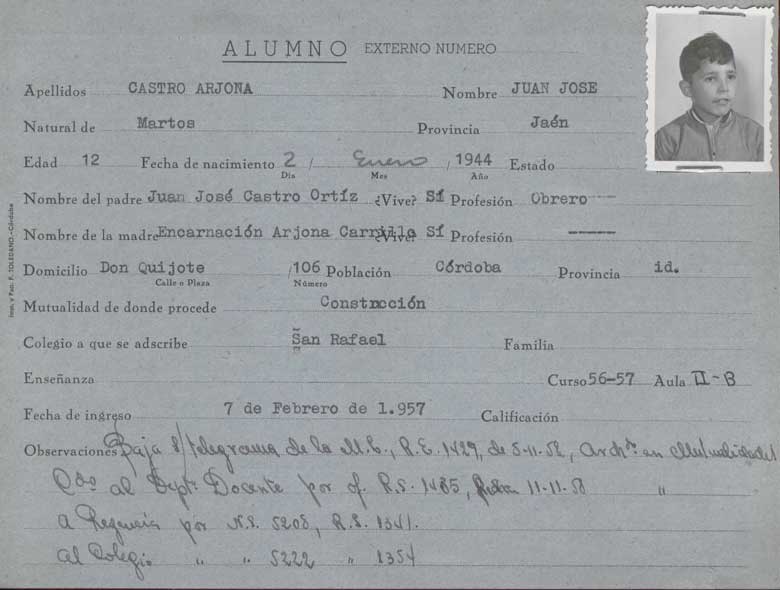 ALUMNO EXTERNO NUMERO
Apellidos CASTRO ARJONA Nombre JUAN JOSE
Natural de Martos Provincia Jaén
Edad 12 Fecha de nacimiento 2 / Enero / 1944 Estado
Día Mes Año
Nombre del padre Juan José Castro Ortíz ¿Vive? Sí Profesión Obrero
Nombre de la madre Encarnación Arjona Carrillo ¿Vive? Sí Profesión -----
Domicilio Don Quijote /106 Población Córdoba Provincia id.
Calle o Plaza Número
Mutualidad de donde procede Construcción
Colegio a que se adscribe San Rafael Familia
Enseñanza Curso 56-57 Aula II-B
Fecha de ingreso 7 de Febrero de 1.957 Calificación
Observaciones Baja s/telegrama de la M.C., R.E. 1429, de 5-11-58, Archº en Mutualidad
Cdo al Deptº Docente por of. R.S. 1485, 11-11-58 "
a Regencia por N.S. 5208, R.S. 1341.
al Colegio " " 5222 " 1354
Imp. y Pap. F. TOLEDANO.-Córdoba